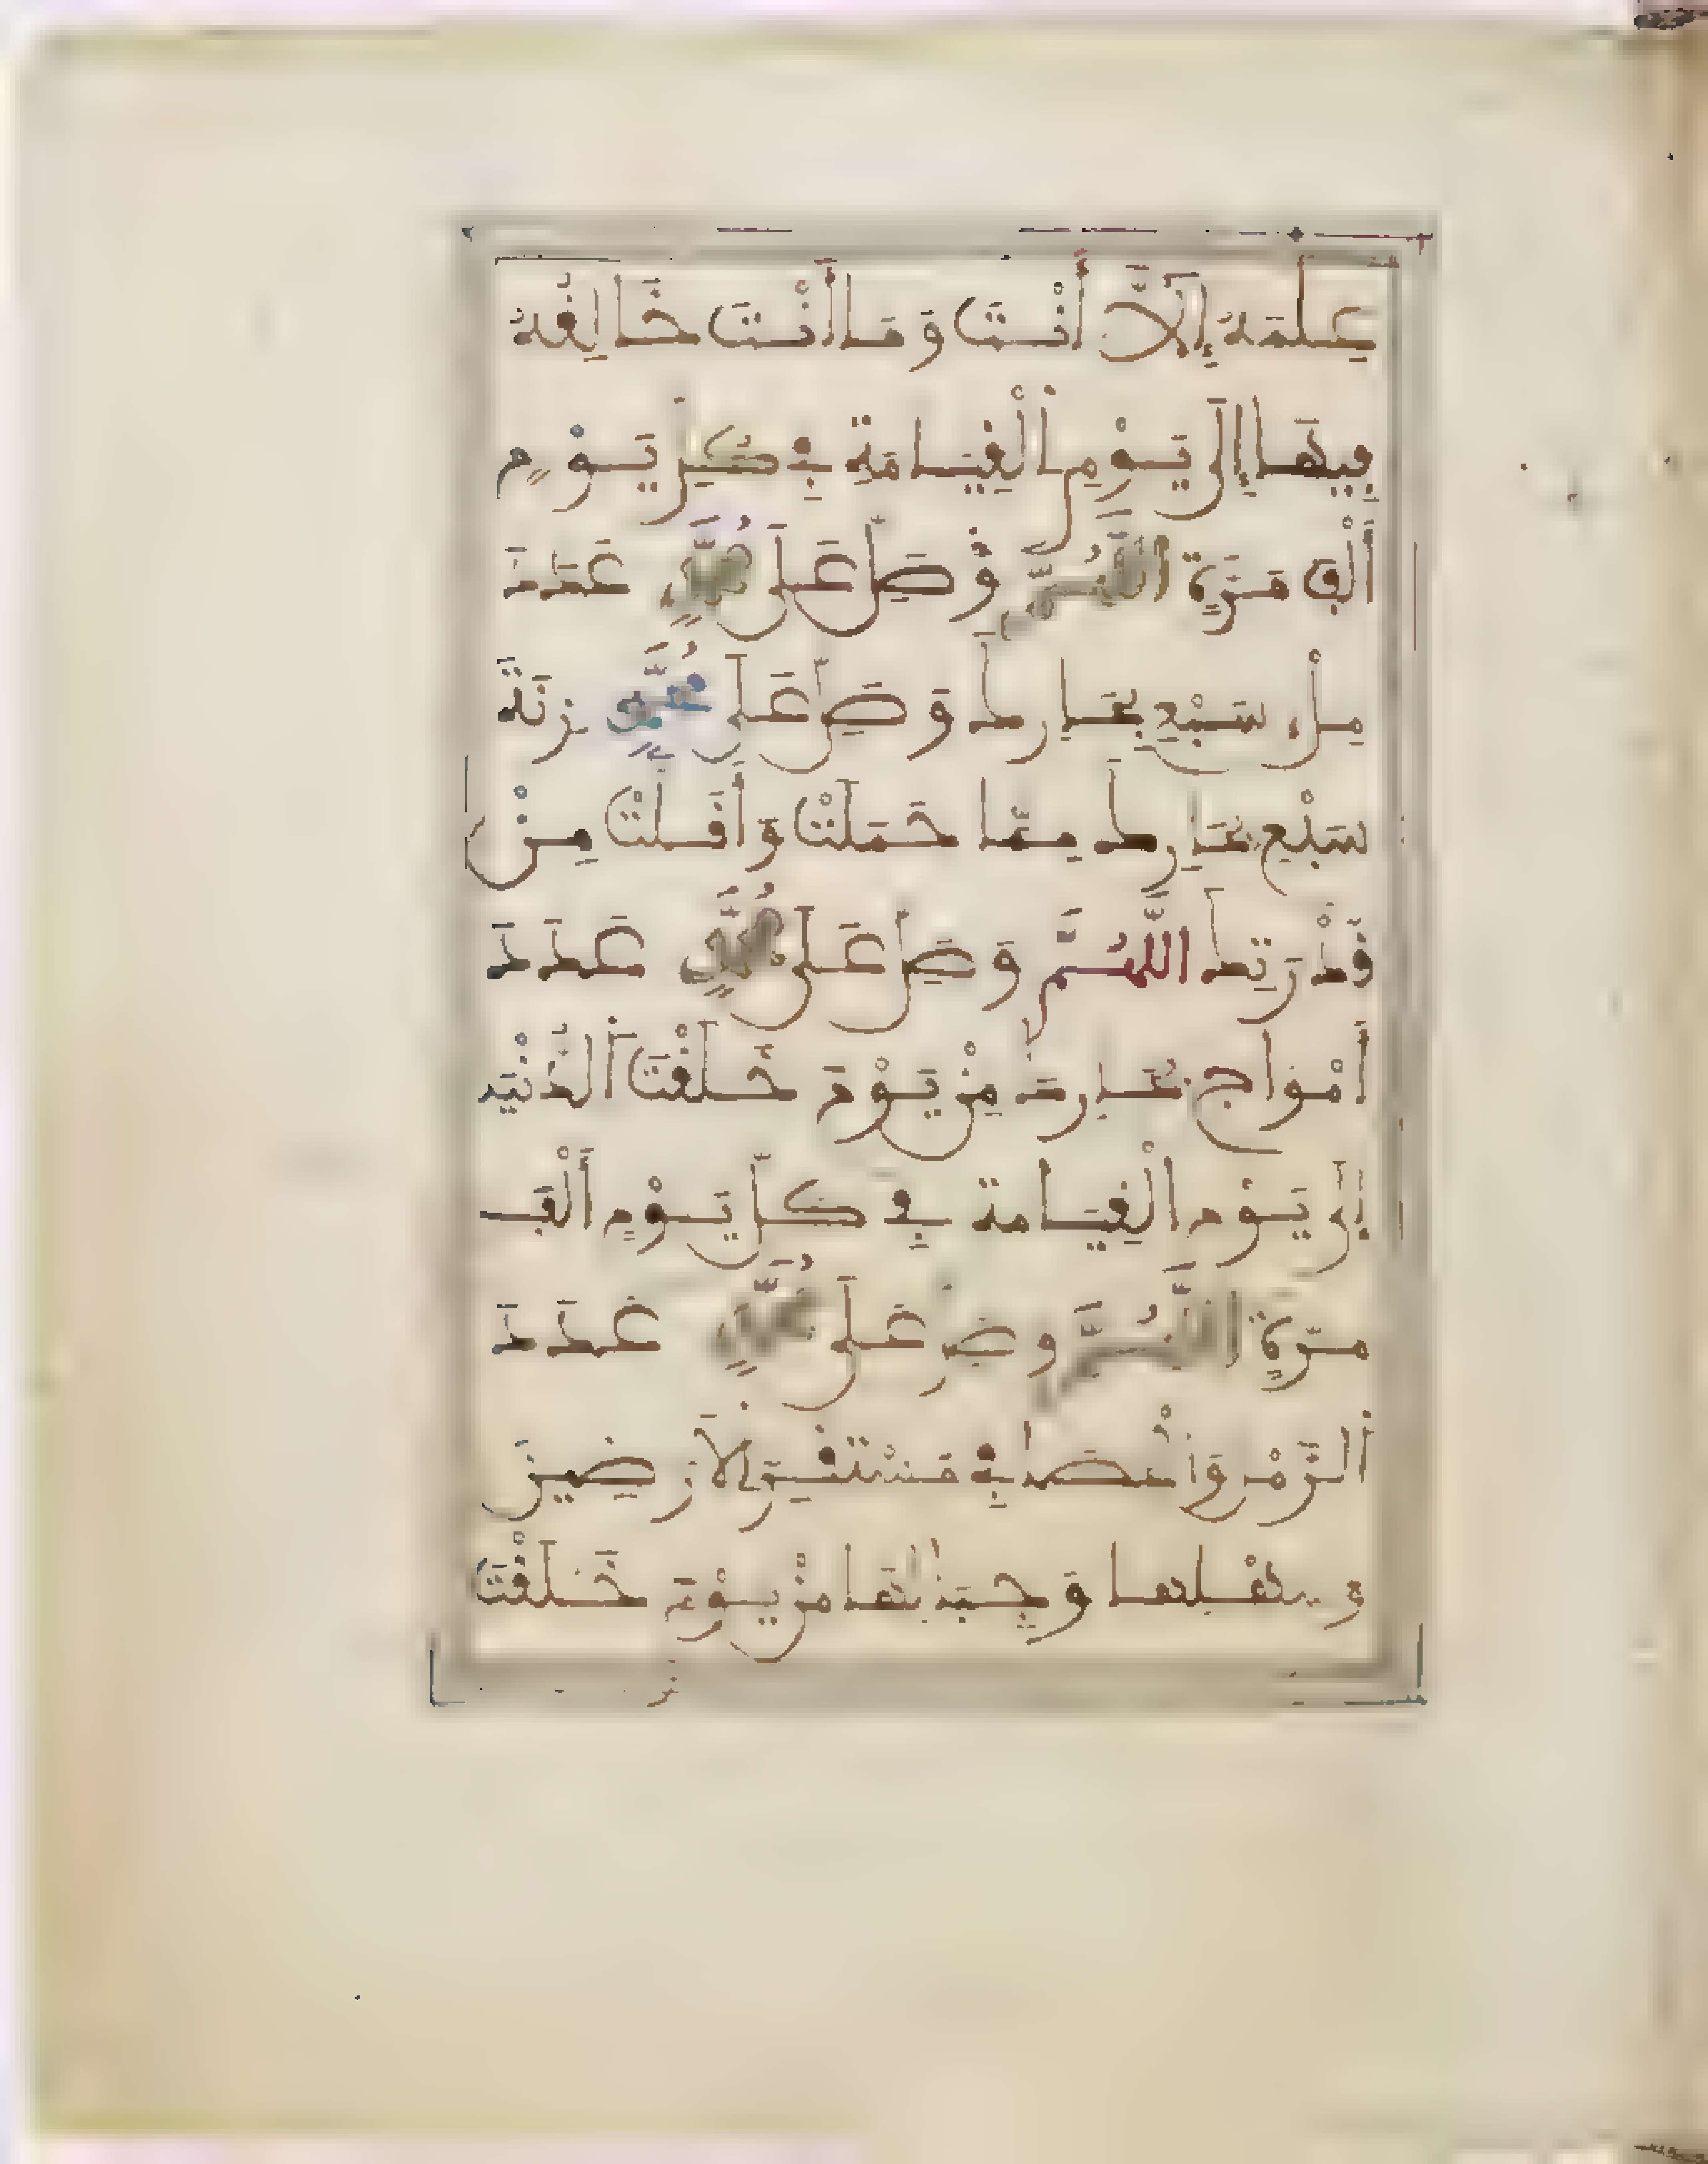 عِلْمَهُ إِلَّا أَنْتَ وَمَا أَنْتَ خَالِقُهُ
فِيهَا إِلَى يَوْمِ الْقِيَامَةِ فِي كُلِّ يَوْمٍ
أَلْفَ مَرَّةٍ اللَّهُمَّ وَصَلِّ عَلَى مُحَمَّدٍ عَدَدَ
مِلْءِ سَبْعِ بِحَارِكَ وَصَلِّ عَلَى مُحَمَّدٍ زِنَةَ
سَبْعِ بِحَارِكَ مِمَّا حَمَلَتْ وَأَقَلَّتْ مِنْ
قُدْرَتِكَ اللَّهُمَّ وَصَلِّ عَلَى مُحَمَّدٍ عَدَدَ
أَمْوَاجِ بِحَارِكَ مِنْ يَوْمَ خَلَقْتَ الدُّنْيَا
إِلَى يَوْمِ الْقِيَامَةِ فِي كُلِّ يَوْمٍ أَلْفَ
مَرَّةٍ اللَّهُمَّ وَصَلِّ عَلَى مُحَمَّدٍ عَدَدَ
الرَّمْلِ وَالْحَصَا فِي مُسْتَقَرِّ الْأَرَضِينَ
وَسَهْلِهَا وَجِبَالِهَا مِنْ يَوْمَ خَلَقْتَ